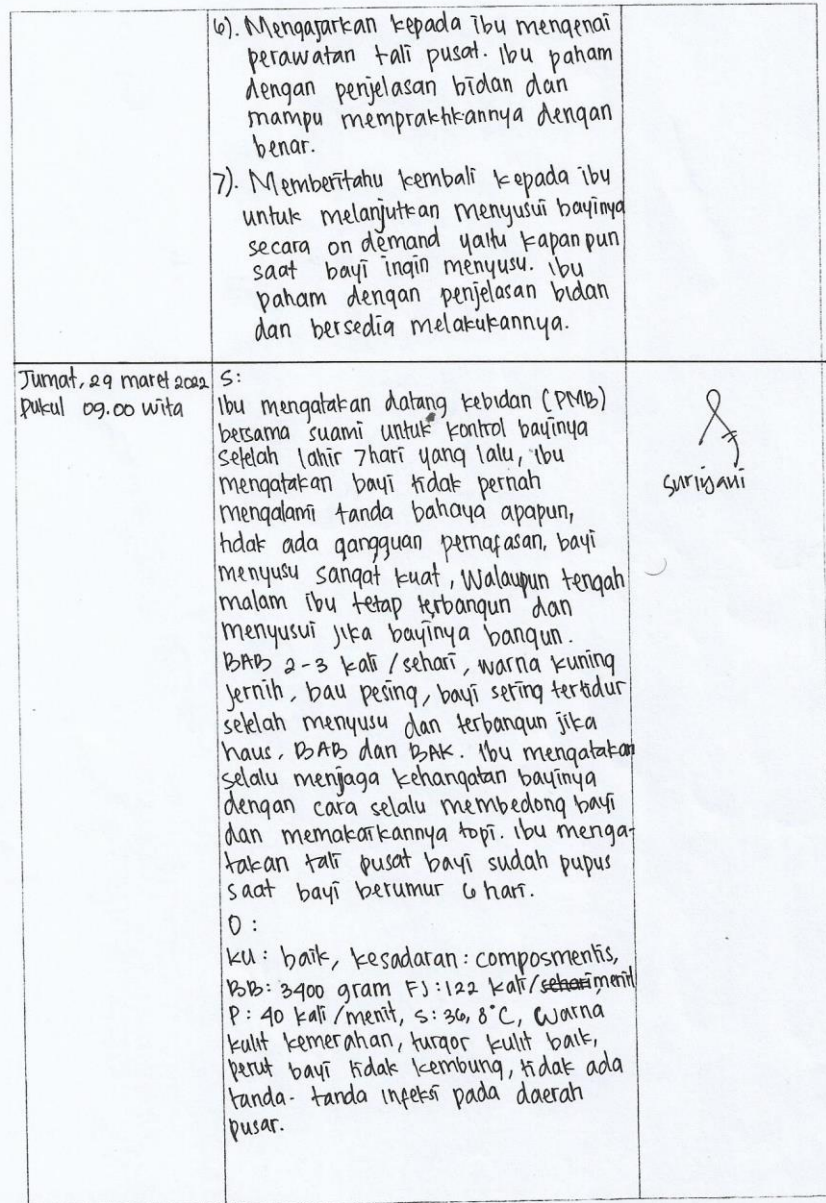 6). Mengajarkan kepada ibu mengenai
perawatan tali pusat. Ibu paham
dengan penjelasan bidan dan
mampu mempraktikannya dengan
benar.
7). Memberitahu kembali kepada ibu
untuk melanjutkan menyusui bayinya
secara on demand yaitu kapan pun
saat bayi ingin menyusu. ibu
paham dengan penjelasan bidan
dan bersedia melakukannya.
Jumat, 29 maret 2022
Pukul 09.00 wita
S:
Ibu mengatakan datang kebidan (PMB)
bersama suami untuk kontrol bayinya
setelah lahir 7 hari yang lalu, ibu
mengatakan bayi tidak pernah
mengalami tanda bahaya apapun,
tidak ada gangguan pernafasan, bayi
menyusu sangat kuat, Walaupun tengah
malam ibu tetap terbangun dan
menyusui jika bayinya bangun.
BAB 2-3 kali / sehari, warna kuning
jernih, bau pesing, bayi sering tertidur
setelah menyusu dan terbangun jika
haus, BAB dan BAK. Ibu mengatakan
selalu menjaga kehangatan bayinya
dengan cara selalu membedong bayi
dan memakaikannya topi. ibu menga-
takan tali pusat bayi sudah pupus
saat bayi berumur 6 hari.
O :
KU : baik, kesadaran : composmentis,
BB : 3400 gram FJ : 122 kali/sehari menit
P : 40 kali / menit, S : 36, 8°C, Warna
kulit kemerahan, turgor kulit baik,
perut bayi tidak kembung, tidak ada
tanda- tanda infeksi pada daerah
pusar.
Suriyani